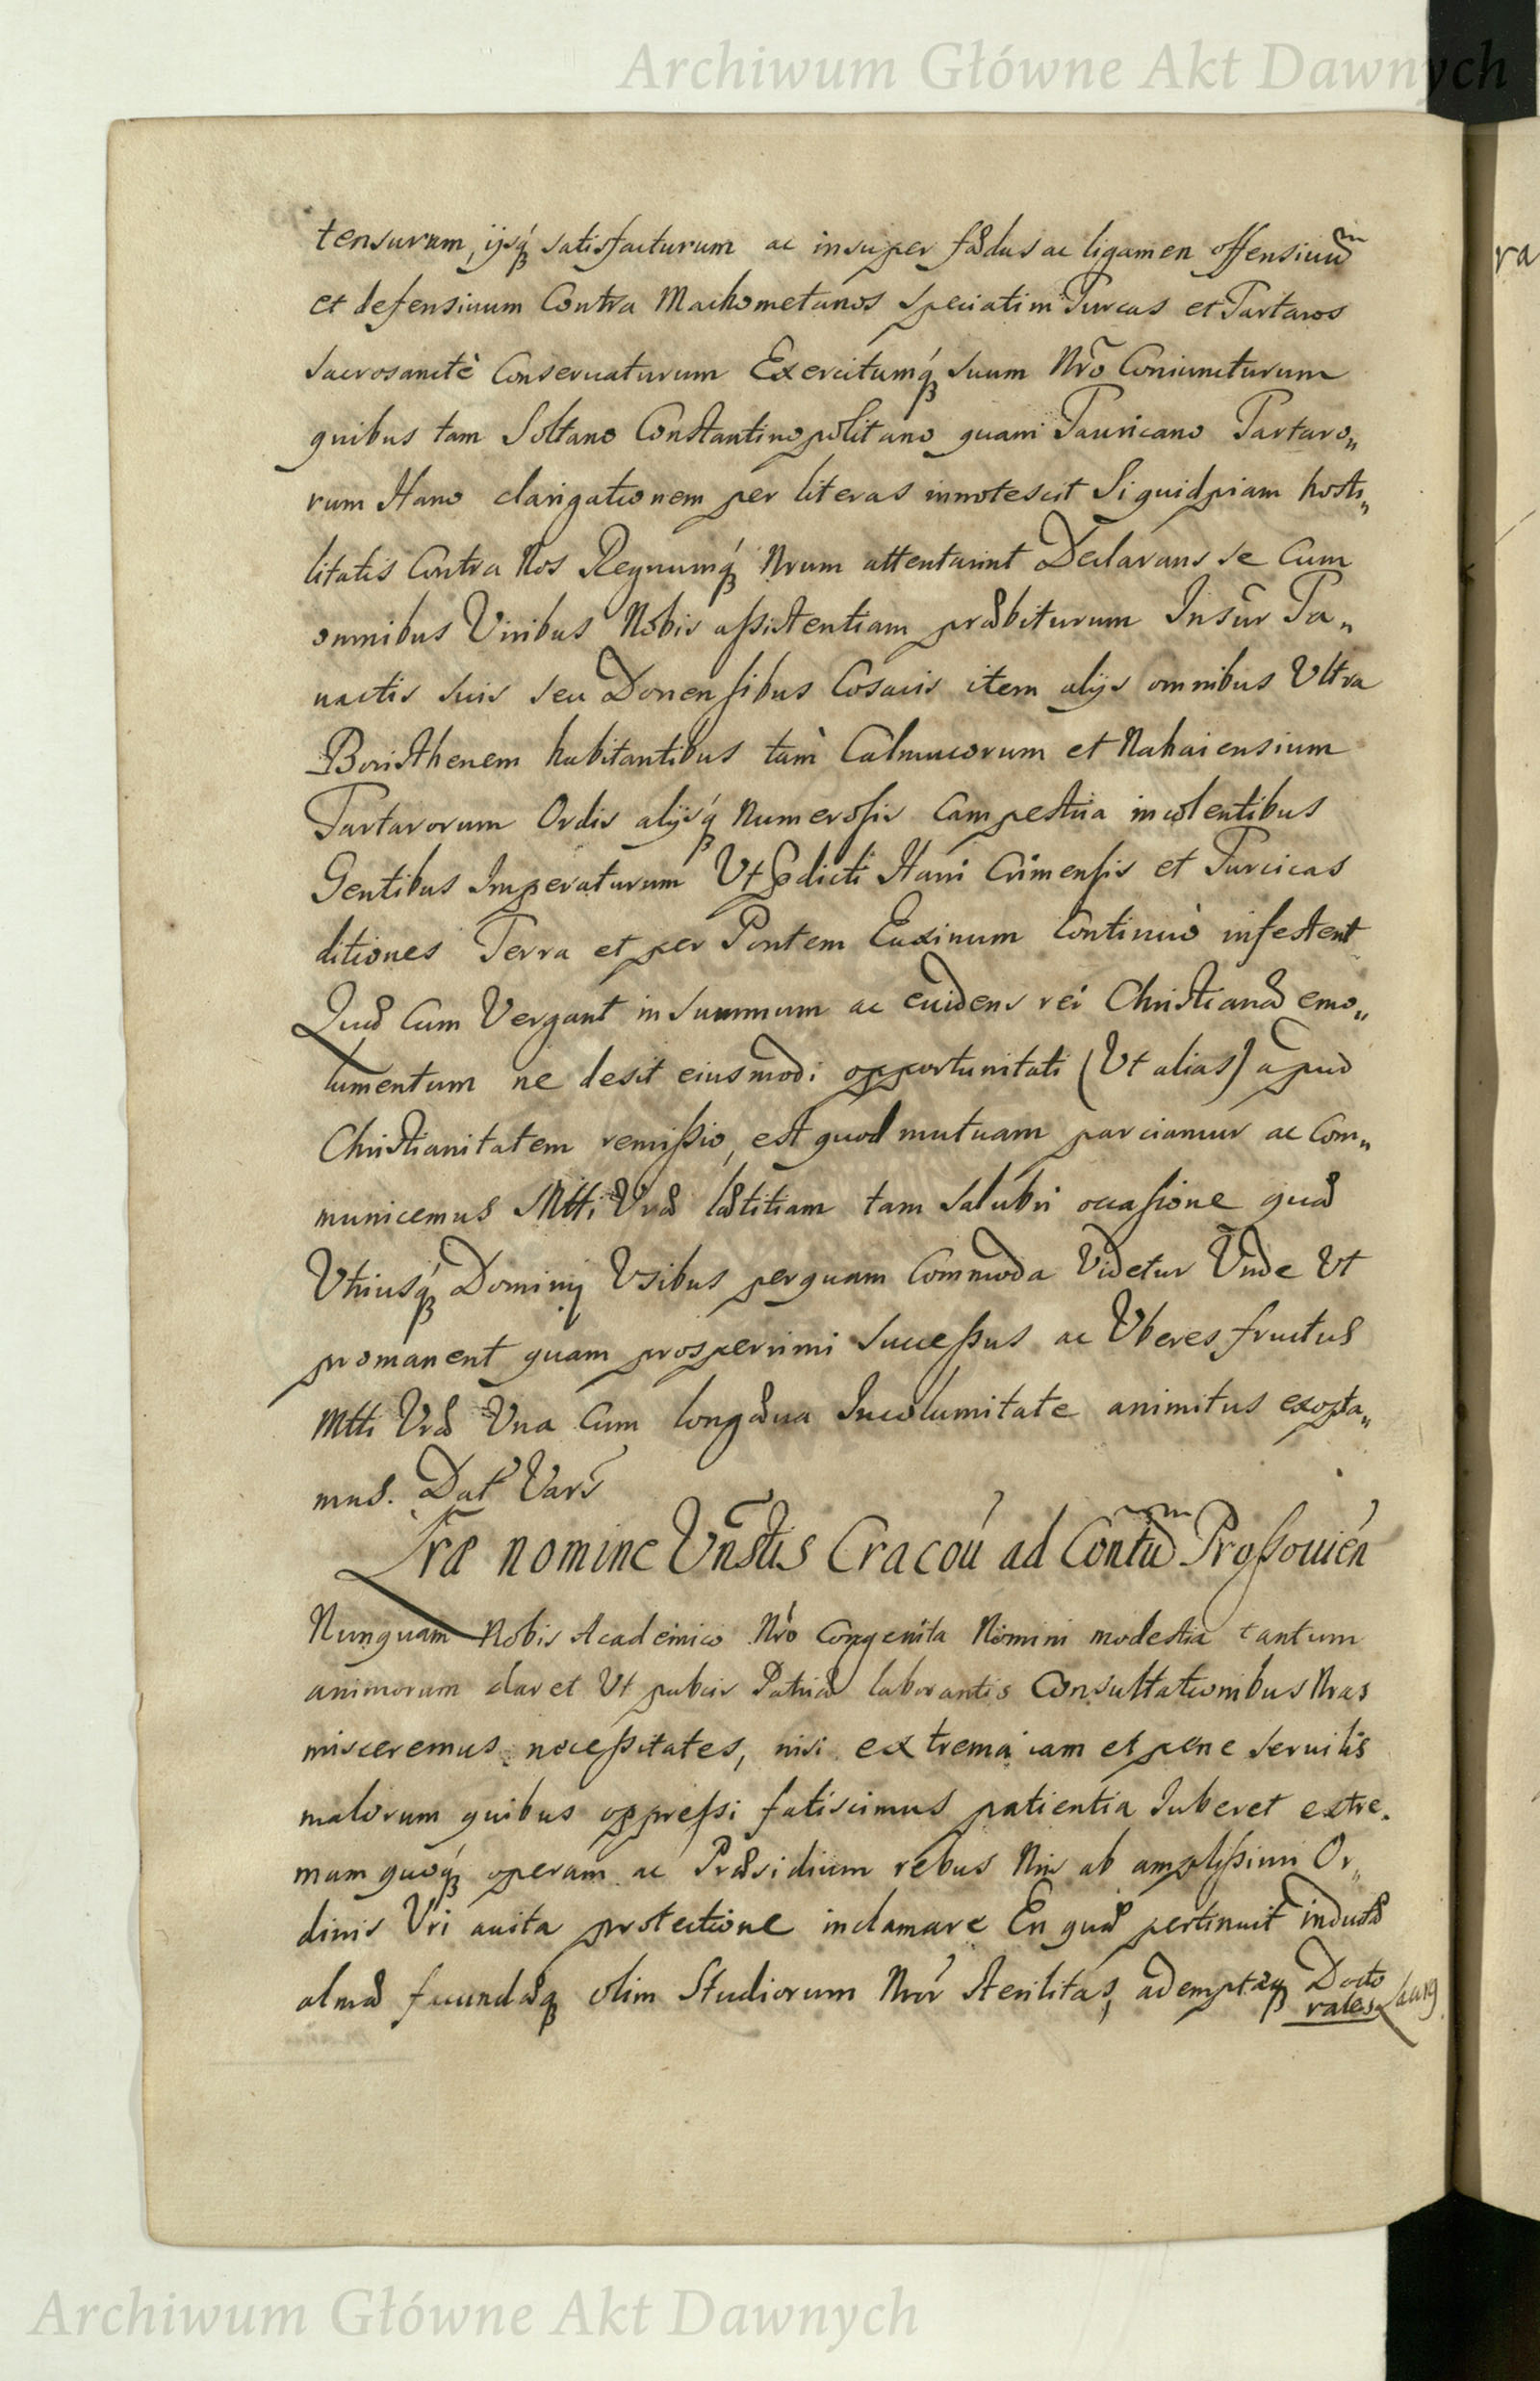 Archiwum Główne Akt Dawnych
tensurum, ijsq́ satisfacturum ac insuper fædus ac ligamen offensiuũ
et defensiuum Contra Machometanos speciatim Turcas et Tartaros
sacrosanctè Conseruaturum Exercitumq́ suum Nrõ Coniuncturum
quibus tam Soltano Constantinopolitano quam Tauricano Tartaro„
rum Hano clarigationem per literas innotescit Siquidpiam hosti„
litatis Contra Nos Regnumq́ Nrum attentarint Declarans se Cum
omnibus Viribus Nobis assistentiam præbiturum Insũr Ta„
nactis suis seu Donensibus Cosacis item alijs omnibus Vltra
Boristhenem habitantibus tam̀ Calmucorum et Nahaiensium
Tartarorum Ordis alijsq́ Numerosis Campestria incolentibus
Gentibus Imperaturum Vt Pdicti Hani Crimensis et Turcicas
ditiones Terra et per Pontem Euxinum Continuò infestent
Quæ Cum Vergant in summum ac euidens rei Christianæ emo„
lumentum ne desit eiusmodi opportunitati (Vt alias) apud
Christianitatem remissio, est quod mutuam parciamur ac Com„
municemus Mtti Vræ lætitiam tam salubri occasione quæ
Vtriusq́ Dominij Vsibus perquam Commoda Videtur Vnde Vt
promanent quam prosperrimi Successus ac Vberes fructus
Mtti Vræ Vna Cum longæua Incolumitate animitus exopta„
mus. Dat Vars
Lræ nomine Vñstis Cracoú ad Contũ Prossouién
Nunquam Nobis Academico Nrõ Congenita Nomini modestia tantum
animorum daret Vt pubcis Patriæ laborantis Consultationibus Nras
misceremus necessitates, nisi extrema iam et pene seruilis
malorum quibus oppressi fatiscimus patientia Iuberet extre„
mam quoq́ operam ac Præsidium rebus Nris ab amplissimi Or„
dinis Vri auita protectione inclamare En quæ pertinuit inducta
almæ fecundæq́ olim Studiorum Nror sterilitas, ademptaq́ Docto
rales Laurq
ra
Archiwum Główne Akt Dawnych